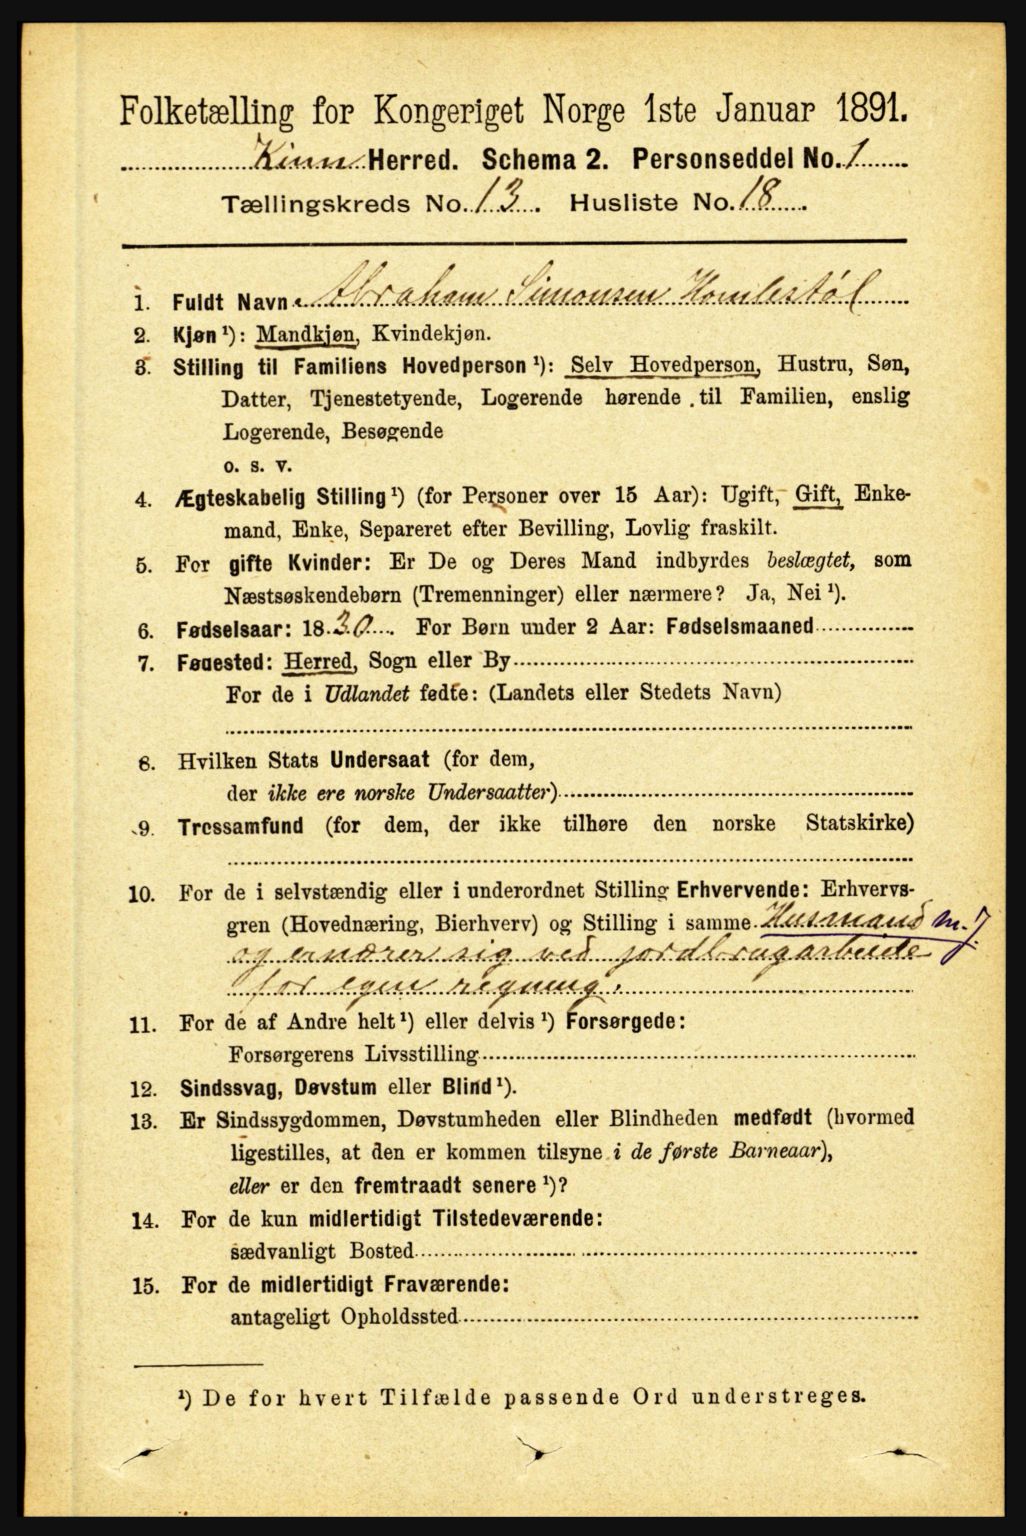 Folketælling for Kongeriget Norge 1ste Januar 1891.
Kinn Herred. Schema 2. Personseddel No. 1
Tællingskreds No. 13. Husliste No. 18.
1. Fuldt Navn: Abraham Simonsen Homlestøl
2. Kjøn ¹): Mandkjøn, Kvindekjøn.
3. Stilling til Familiens Hovedperson ¹): Selv Hovedperson, Hustru, Søn,
Datter, Tjenestetyende, Logerende hørende til Familien, enslig
Logerende, Besøgende
o. s. v.
4. Ægteskabelig Stilling ¹) (for Personer over 15 Aar): Ugift, Gift, Enke-
mand, Enke, Separeret efter Bevilling, Lovlig fraskilt.
5. For gifte Kvinder: Er De og Deres Mand indbyrdes beslægtet, som
Næstsøskendebørn (Tremenninger) eller nærmere? Ja, Nei ¹).
6. Fødselsaar: 1830. For Børn under 2 Aar: Fødselsmaaned
7. Fødested: Herred, Sogn eller By
For de i Udlandet fødte: (Landets eller Stedets Navn)
8. Hvilken Stats Undersaat (for dem,
der ikke ere norske Undersaatter)
9. Trossamfund (for dem, der ikke tilhøre den norske Statskirke)
10. For de i selvstændig eller i underordnet Stilling Erhvervende: Erhvervs-
gren (Hovednæring, Bierhverv) og Stilling i samme Husmand m. J.
og ernærer sig ved jordbrugarbeide
for egen regning.
11. For de af Andre helt ¹) eller delvis ¹) Forsørgede:
Forsørgerens Livsstilling
12. Sindssvag, Døvstum eller Blind ¹).
13. Er Sindssygdommen, Døvstumheden eller Blindheden medfødt (hvormed
ligestilles, at den er kommen tilsyne i de første Barneaar),
eller er den fremtraadt senere ¹)?
14. For de kun midlertidigt Tilstedeværende:
sædvanligt Bosted
15. For de midlertidigt Fraværende:
antageligt Opholdssted
¹) De for hvert Tilfælde passende Ord understreges.